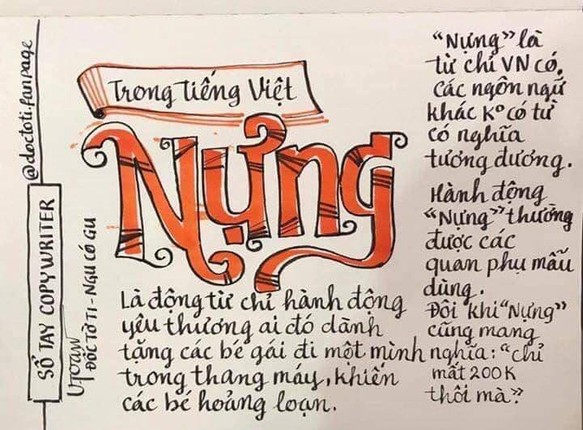 @doctoti.fanpage
SỔ TAY COPYWRITER
ĐỐC TỜ TI - NGU CÓ GU
Trong Tiếng Việt
Nựng
Là động từ chỉ hành động
yêu thương ai đó dành
tặng các bé gái đi một mình
trong thang máy, khiến
các bé hoảng loạn.
"Nựng" là
từ chỉ VN có.
các ngôn ngữ
khác K° có từ
có nghĩa
tương đương.
Hành động
"Nựng" thường
được các
quan phụ mẫu
dùng.
Đôi khi "Nựng"
cũng mang
nghĩa: "chỉ
mất 200K
thôi mà?